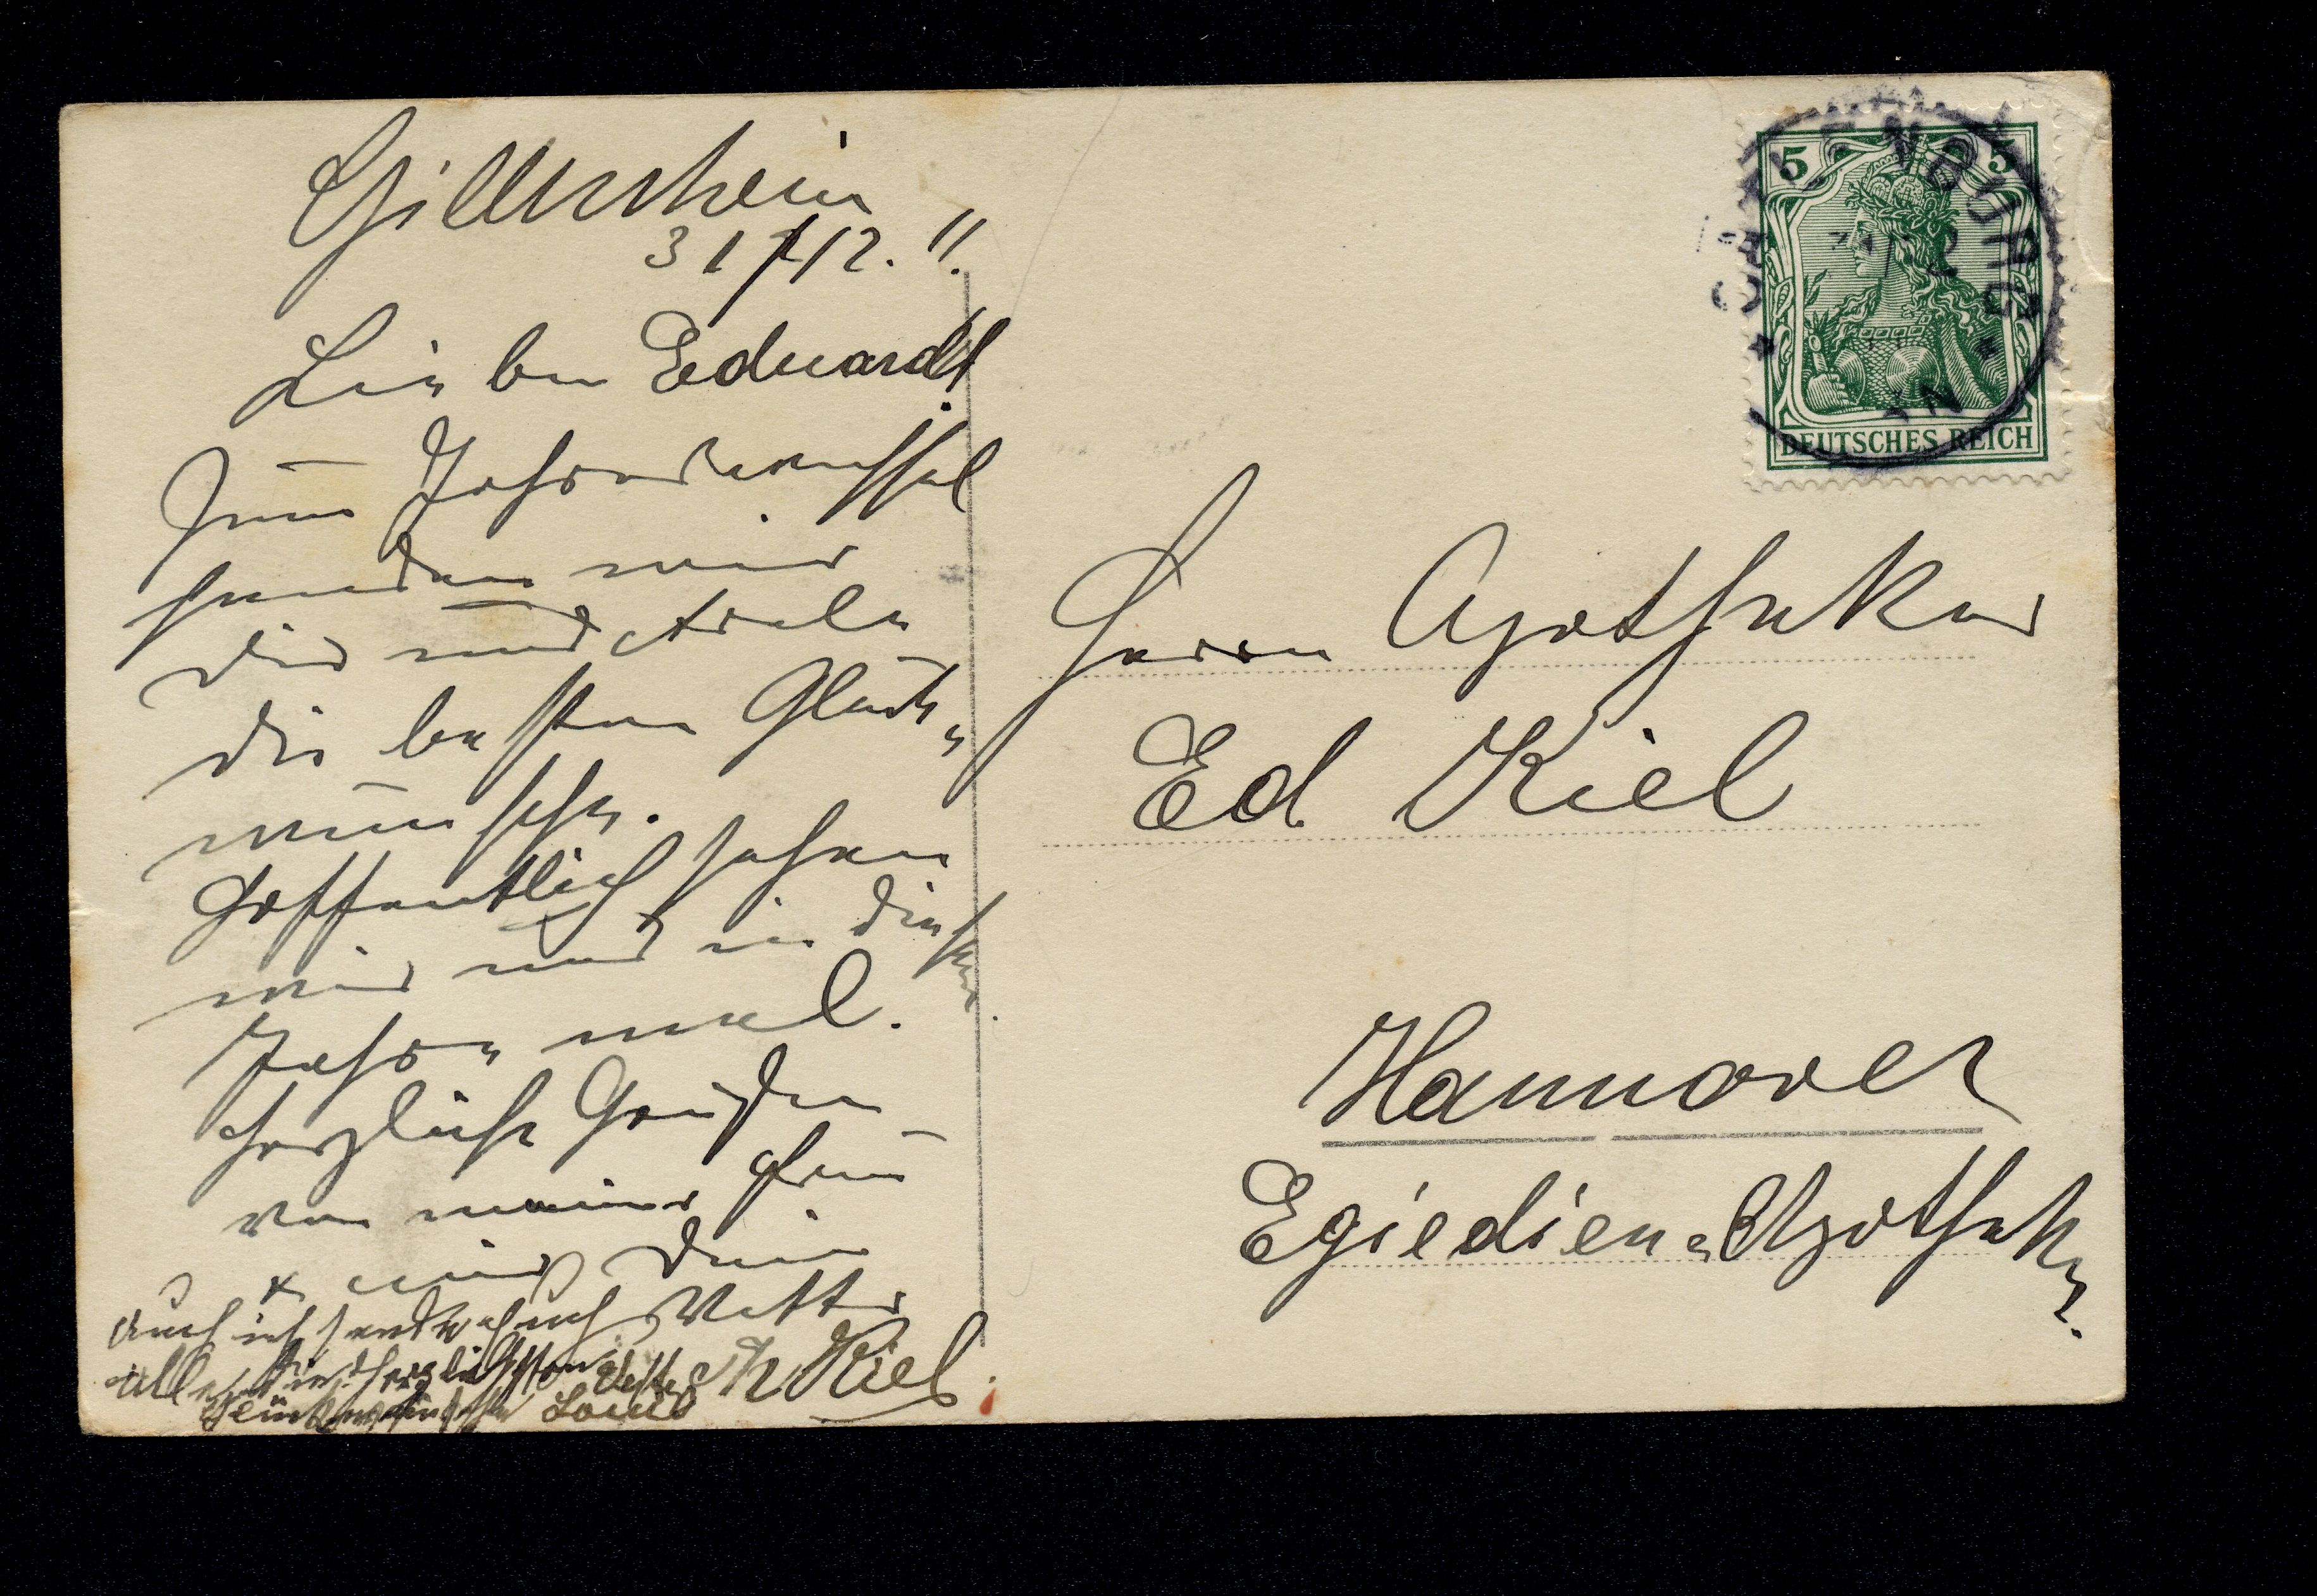 Gillersheim
31/12. 11.
Lieber Eduardt
Zum Jahreswechsel
senden wir
Dir und Adele
die besten Glück-
wünsche.
Hoffentlich sehen
wir uns in diesem
Jahre mal.
Herzliche Grüße
von meiner Frau
u mir Dein
Vetter
Th Kiel.
Auch ich sende euch
allen die herzlichsten
Glückwünsche Vetter
Louis
5 5
DEUTSCHES REICH
CATLENBURG
Herrn Apotheker
Ed Kiel
Hannover
Egiedien-Apotheke.